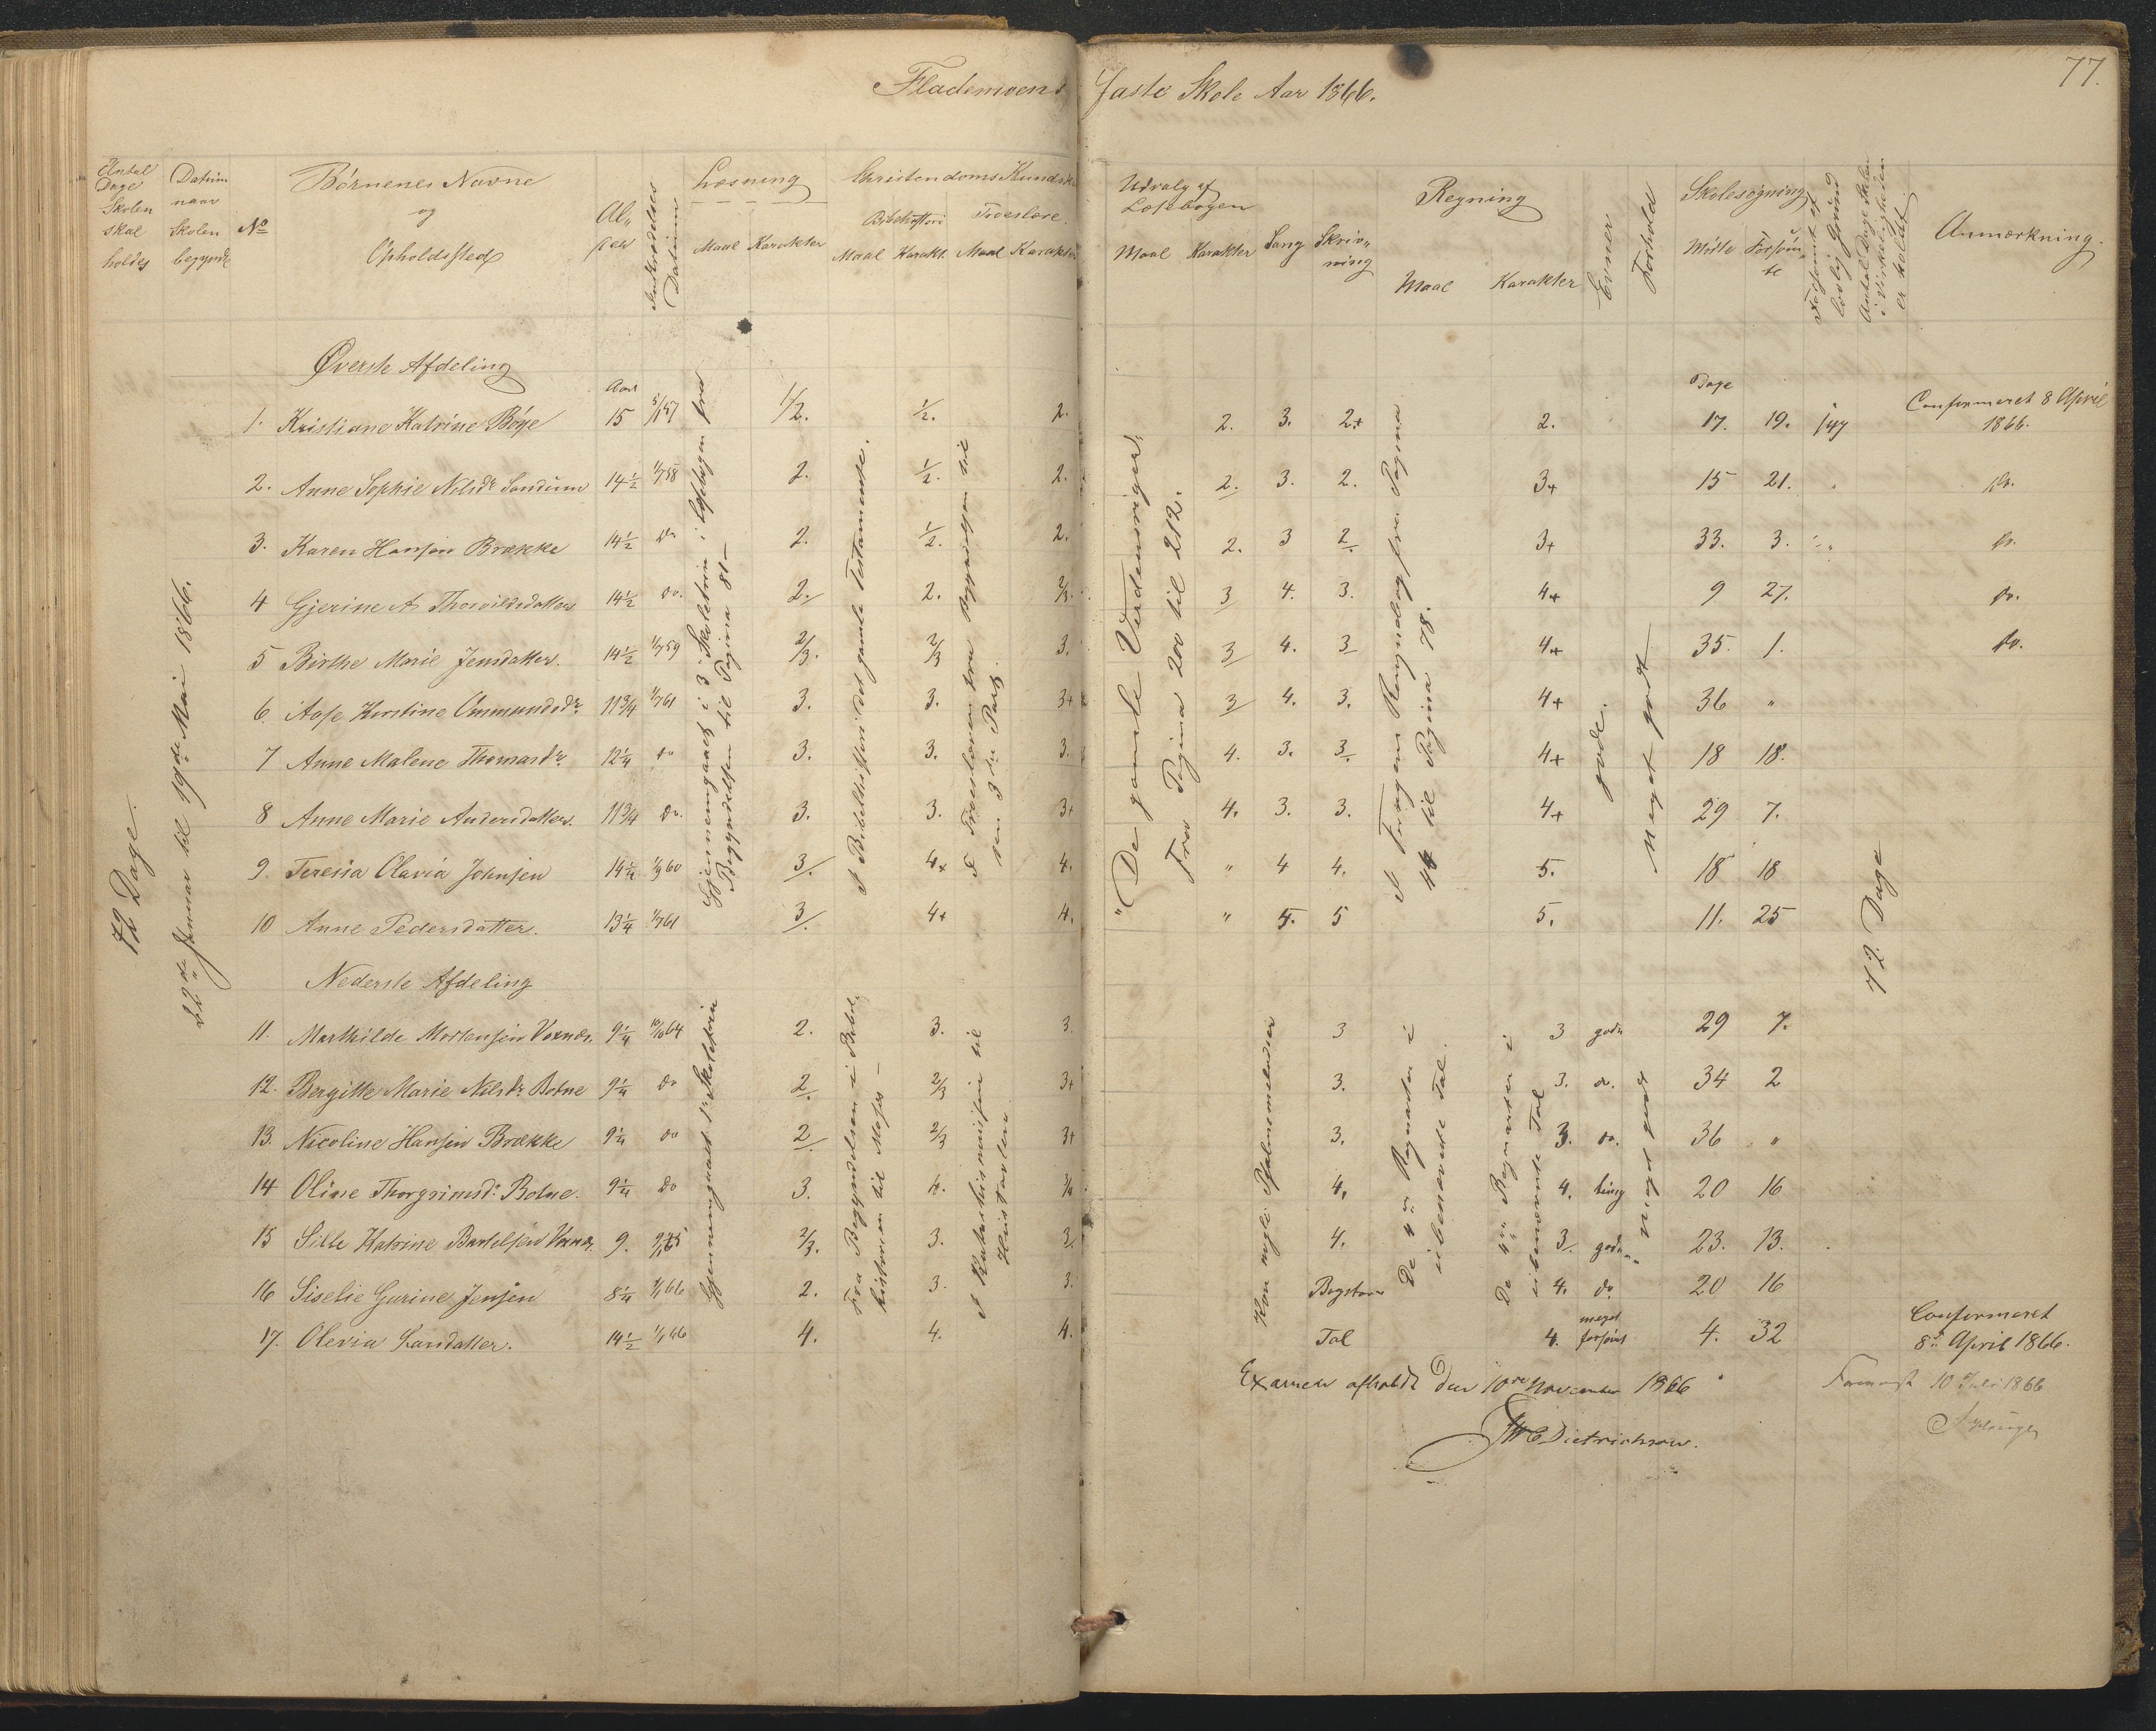 77.
Flademoens faste Skole Aar 1866.
Antal Dage Skolen skal holdes
Datum naar Skolen begyndte
No
Børnenes Navne og Opholdssted
Al„ der
Indtrædelses Datum
Læsning
Maal Karakter
Christendoms Kundska
Bibelhistori Troeslære
Maal Karakt. Maal Karakter
Udvalg af Læsebogen
Maal Karakter
Sang
Skriv„ ning
Regning
Maal Karakter
Evner
Forhold
Skolesøgning
Mødte Forsømte
Forsømt af lovlig Grund
Antal Dage Skolen i Virkeligheden er holdt
Anmærkning.
72 Dage.
22de Januar til 19de Mai 1866.
Øverste Afdeling
Aar
Dage
1. Kristiane Katrine Bøye 15 5/1 57 1/2. 1/2. 2. 2. 3. 2+ 2. 17. 19. Confirmeret 8 April 1866.
2. Anne Sophie Nilsdr Sandum 14½ 1/7 58 2. 1/2. 2. 2. 3. 2. 3+ 15 21. do.
3. Karen Hansen Brække 14½ do 2. 1/2. 2. 2. 3 2 3+ 33. 3. do.
4 Gjerine A Thorvildsdatter 14½ do. 2. 2. 2/3. 3 4. 3. 4+ 9 27. do.
5 Birthe Marie Jensdatter. 14½ 1/7 59 2/3. 2/3 3. 3 4. 3 4+ 35. 1. do.
6 Aase Kirstine Ommundsdr 11¾ 1/7 61 3. 3. 3+ 3 4. 3. 4+ 36 „
7 Anne Malene Thomasdr 12¼ do 3. 3. 3. 4. 3. 3. 4+ 18 18.
8 Anne Marie Andersdatter. 11¾ do. 3. 3. 3+ 4. 3. 3. 4+ 29 7.
9. Teresia Olavia Johnsen 14¼ 1/9 60 3. 4+ 4. „ 4 4. 5. 18 18
10 Anne Pedersdatter. 13¼ 1/7 61 3. 4+ 4. „ 5. 5 5. 11. 25
Gjennemgaaet i 3 Skoletrin i Læsebogen fra Begyndelsen til Pagina 81
I Bibelhistori det gamle Testamente.
I Troeslæren fra Begyndelsen til den 3die Part
"De gamle Verdensriger"
Fra Pagina 200 til 212.
Regnebog fra Pagina 44 til Pagina 78.
gode.
Meget godt
72 Dage
Nederste Afdeling
11. Marthilde Mortensen Voxnæs. 9¼ 10/10 64 2. 3. 3. 3 3 gode 29 7.
12. Bergitte Marie Nilsdr Botne 9¼ do 2 2/3 3+ 3. 3. do. 34 2
13. Nicoline Hansen Brække 9¼ do 2 2/3 3+ 3. 3. do. 36 „
14 Oline Thorgrimsdr Botne. 9¼ do 3. 4. 3/4 4. 4. 20 16
15 Sille Katrine Bartelsen 9. 2/3. 3. 3. 4. 3. gode 23. 13.
16 Siselie Gurine Jensen 8¼ 1/1 66 2. 3. 3. Bogstav 4. do. 20 16
17. Olevia Larsdatter. 14½ 1/1 66 4. 4. 4. Tal 4. meget 4. 32 Confirmeret 8de April 1866.
Gjennemgaaet 1ste Skoletrin
Fra Begyndelsen i Bibel historien til Moses
I Katekismusen til Hustavlen
Kun nogle Psalmemelodier
De 4re Regnearter i ubenævnte Tal.
De 4re Regnearter i ubenævnte Tal
meget godt
Examen afholdt den 10de November 1866
Dietrichson.
10 Juli 1866